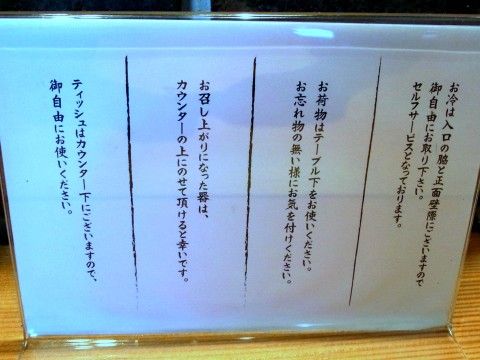 お冷は入口の脇と正面壁際にございますので
御自由にお取り下さい。
セルフサービスとなっております。
お荷物はテーブル下をお使いください。
お忘れ物の無い様にお気を付けください。
お召し上がりになった器は、
カウンターの上にのせて頂けると幸いです。
ティッシュはカウンター下にございますので、
御自由にお使いください。